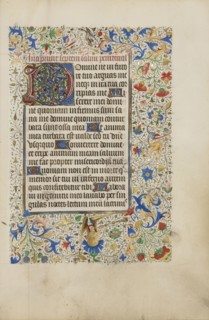 Incipiunt septem psalmi penitenciales
Domine ne in furo
re tuo arguas me
neqz in ira tua cor
ripias me Mi
serere mei domi
ne quoniam infirmus sum sa
na me domine quoniam contur
bata sunt ossa mea Et anima
mea turbata est valde sed tu dne
usquequo Convertere domine
et eripe animam meam salvum
me fac propter misericordiam tuā
Quoniam non est in morte qi
memor sit tui in inferno autem
quis confitebitur tibi Labora
vi in gemitu meo lavabo per sin
gulas noctes lectum meum